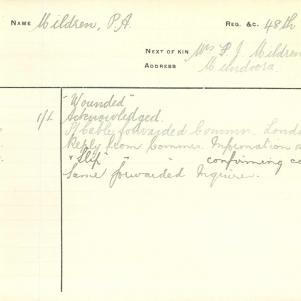 NAME Mildren, P.A. REG. &C. 48th
NEXT OF KIN Mrs P J Mildren
ADDRESS Mundoora
"Wounded"
1/L Acknowledged.
forwarded Commr. Lond
Reply from Commr. Information
"Slip" " " confirming ca
Same forwarded Inquirer.